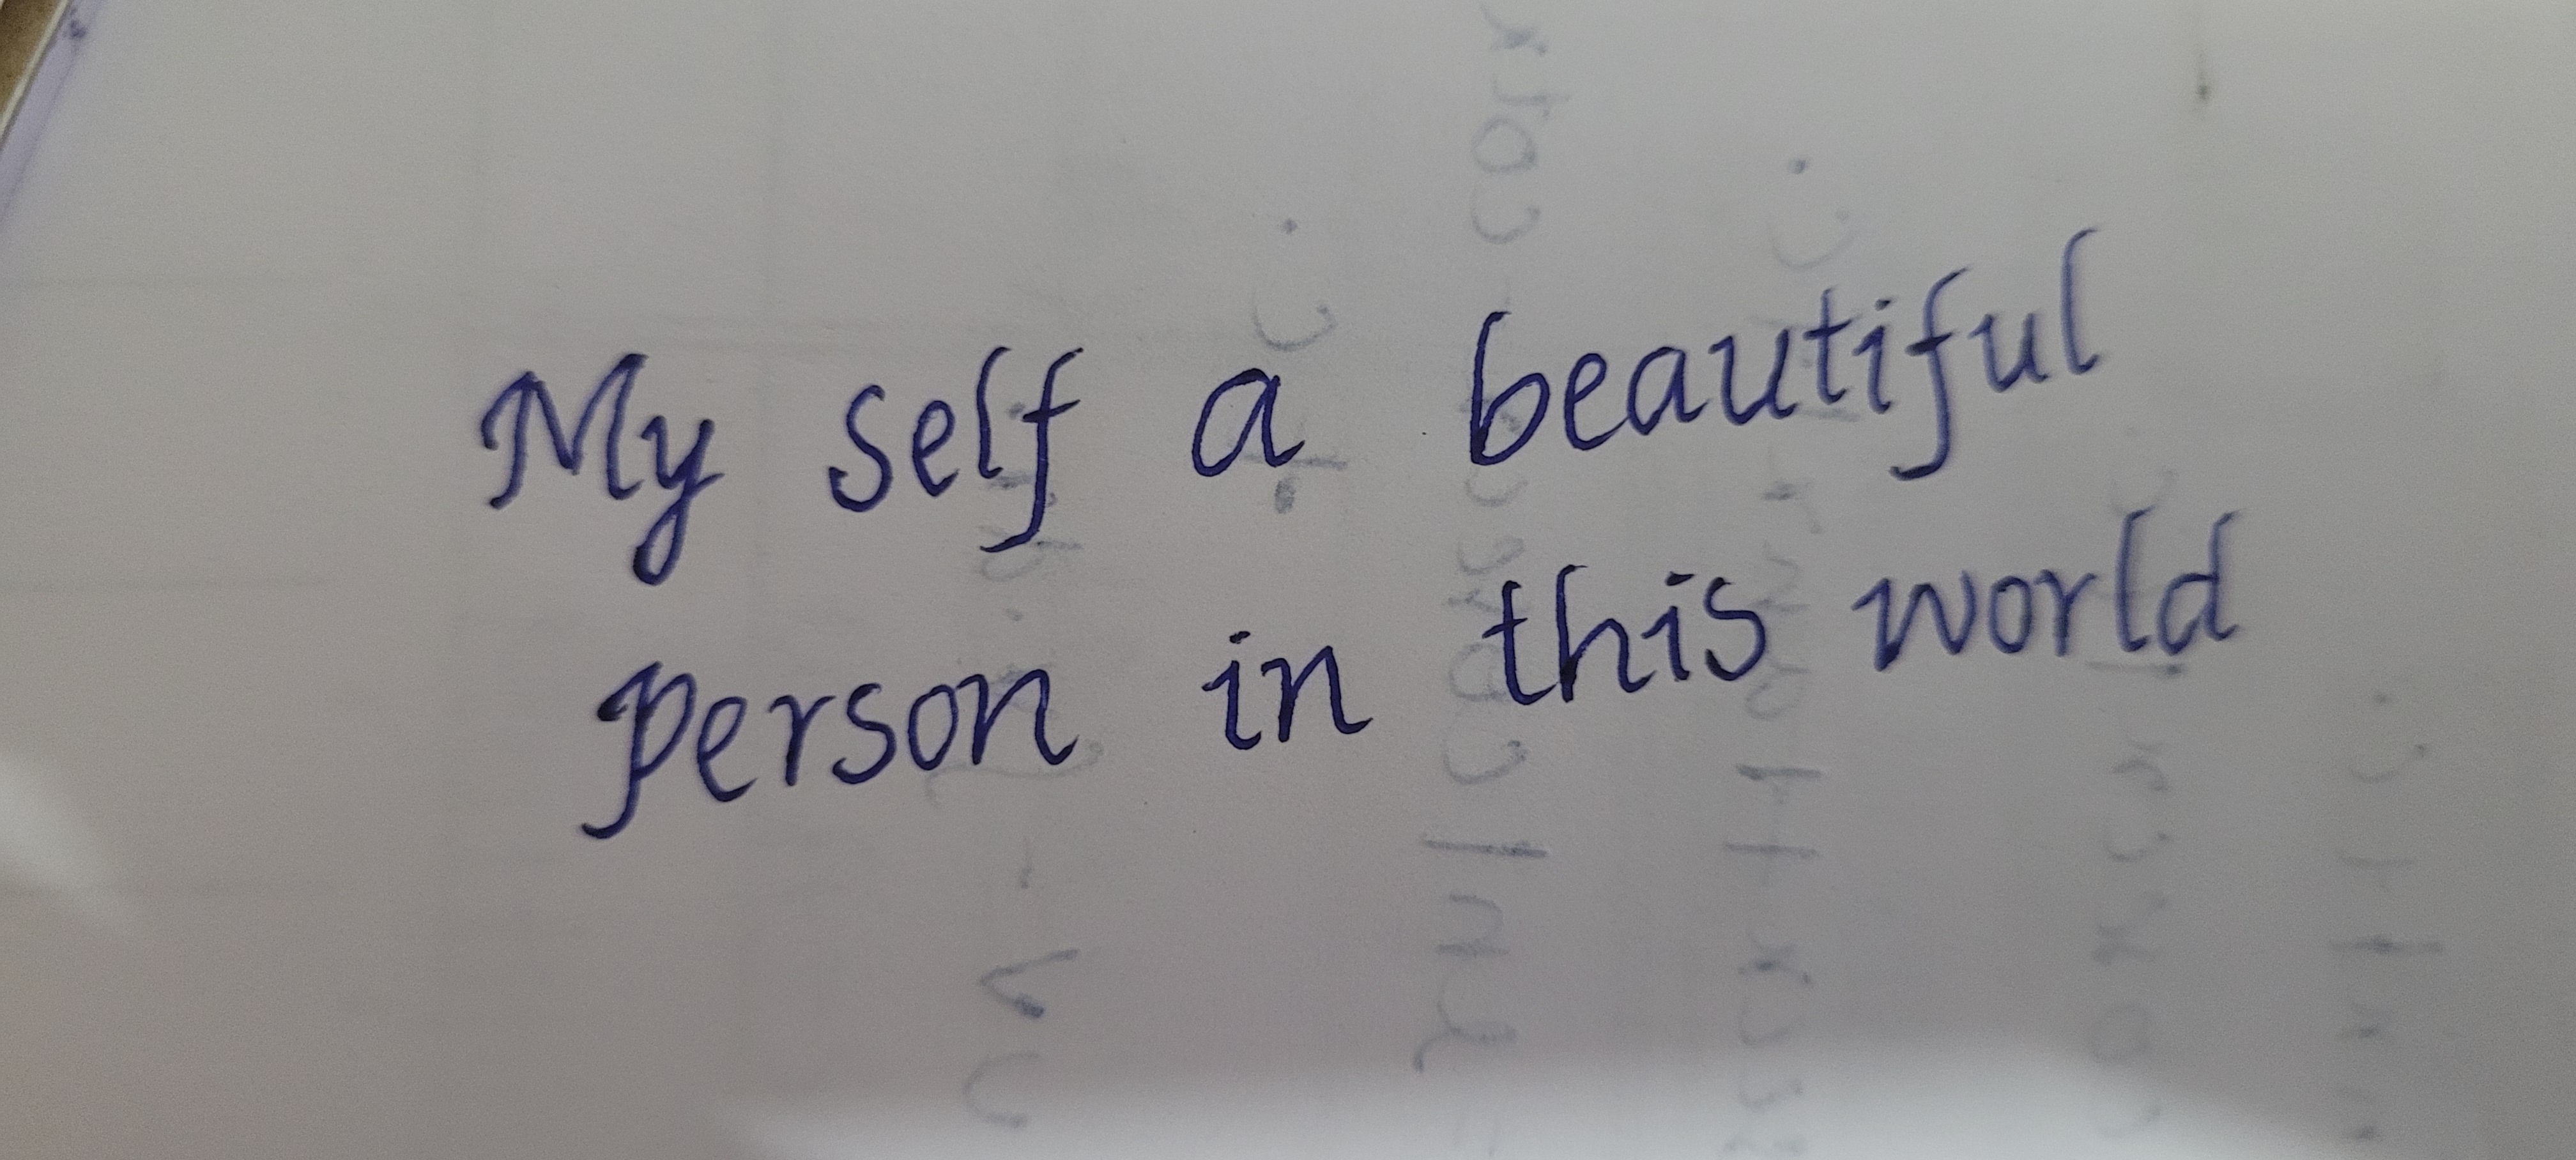 My self a beautiful
person in this world